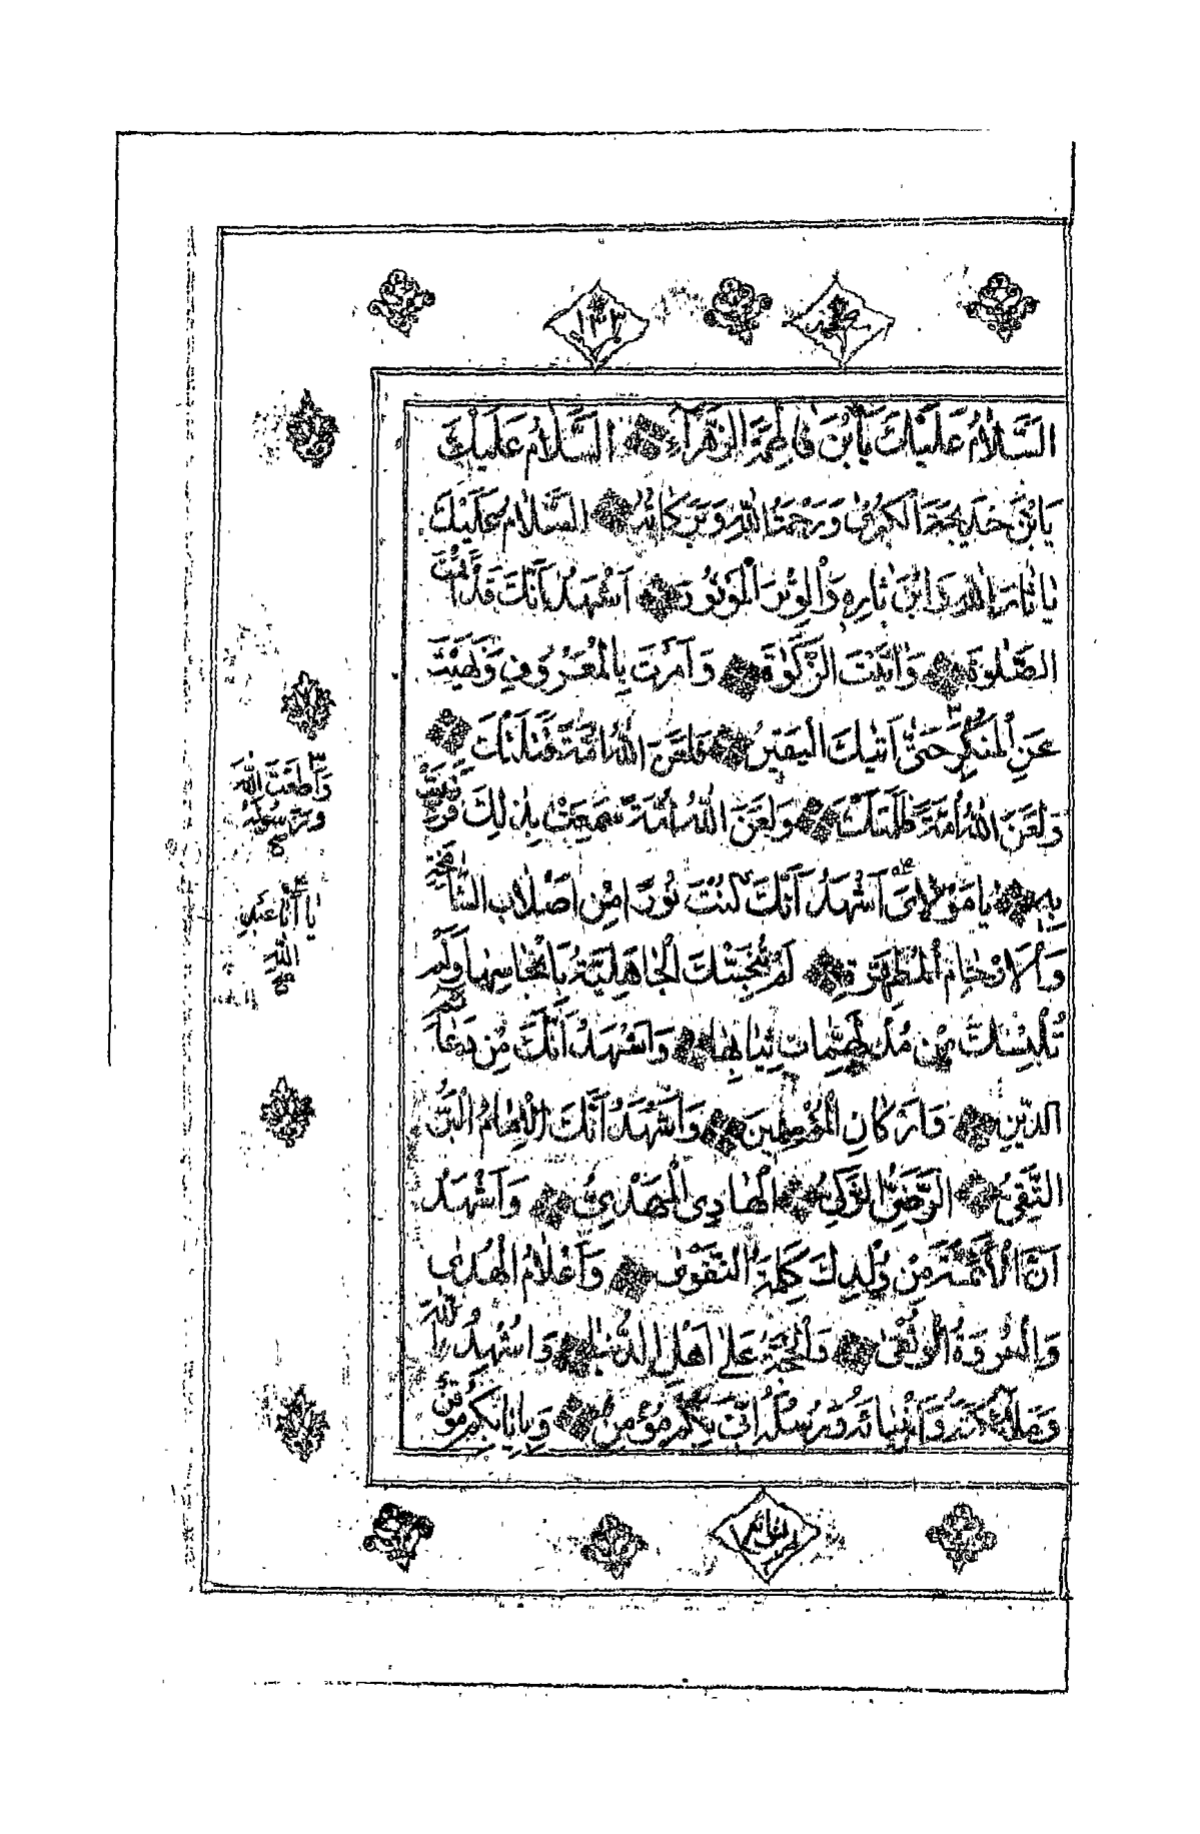 محمد
١٣٣
اَلسَّلَامُ عَلَيْكَ يَا بْنَ فَاطِمَةَ الزَّهْرَآءِ اَلسَّلَامُ عَلَيْكَ
يَا بْنَ خَدِيجَةَ الْكُبْرٰى وَرَحْمَةُ اللّٰهِ وَبَرَكَاتُهُ اَلسَّلَامُ عَلَيْكَ
يَا ثَارَ اللّٰهِ وَابْنَ ثَارِهِ وَالْوِتْرَ الْمَوْتُورَ اَشْهَدُ اَنَّكَ قَدْ اَقَمْتَ
الصَّلٰوةَ وَاٰتَيْتَ الزَّكٰوةَ وَاَمَرْتَ بِالْمَعْرُوفِ وَنَهَيْتَ
عَنِ الْمُنْكَرِ حَتّٰى اَتٰيكَ الْيَقِينُ فَلَعَنَ اللّٰهُ اُمَّةً قَتَلَتْكَ
وَلَعَنَ اللّٰهُ اُمَّةً ظَلَمَتْكَ وَلَعَنَ اللّٰهُ اُمَّةً سَمِعَتْ بِذٰلِكَ فَرَضِيَتْ
بِهِ يَا مَوْلَايَ اَشْهَدُ اَنَّكَ كُنْتَ نُورًا مِنْ اَصْلَابِ الشَّامِخَةِ
وَالْاَرْحَامِ الْمُطَهَّرَةِ لَمْ تُنَجِّسْكَ الْجَاهِلِيَّةُ بِاَنْجَاسِهَا وَلَمْ
تُلْبِسْكَ مِنْ مُدْلَهِمَّاتِ ثِيَابِهَا وَاَشْهَدُ اَنَّكَ مِنْ دَعَائِمِ
الدِّينِ وَاَرْكَانِ الْمُؤْمِنِينَ وَاَشْهَدُ اَنَّكَ الْاِمَامُ الْبَرُّ
التَّقِيُّ الرَّضِيُّ الزَّكِيُّ الْهَادِي الْمَهْدِيُّ وَاَشْهَدُ
اَنَّ الْاَئِمَّةَ مِنْ وُلْدِكَ كَلِمَةُ التَّقْوٰى وَاَعْلَامُ الْهُدٰى
وَالْعُرْوَةُ الْوُثْقٰى وَالْحُجَّةُ عَلٰى اَهْلِ الدُّنْيَا وَاُشْهِدُ اللّٰهَ
وَمَلٰٓئِكَتَهُ وَاَنْبِيَائَهُ وَرُسُلَهُ اَنِّي بِكُمْ مُؤْمِنٌ وَبِاِيَابِكُمْ مُوقِنٌ
وَاَطَعْتَ اللّٰهَ
وَرَسُولَهُ
يَا اَبَا عَبْدِ
اللّٰهِ